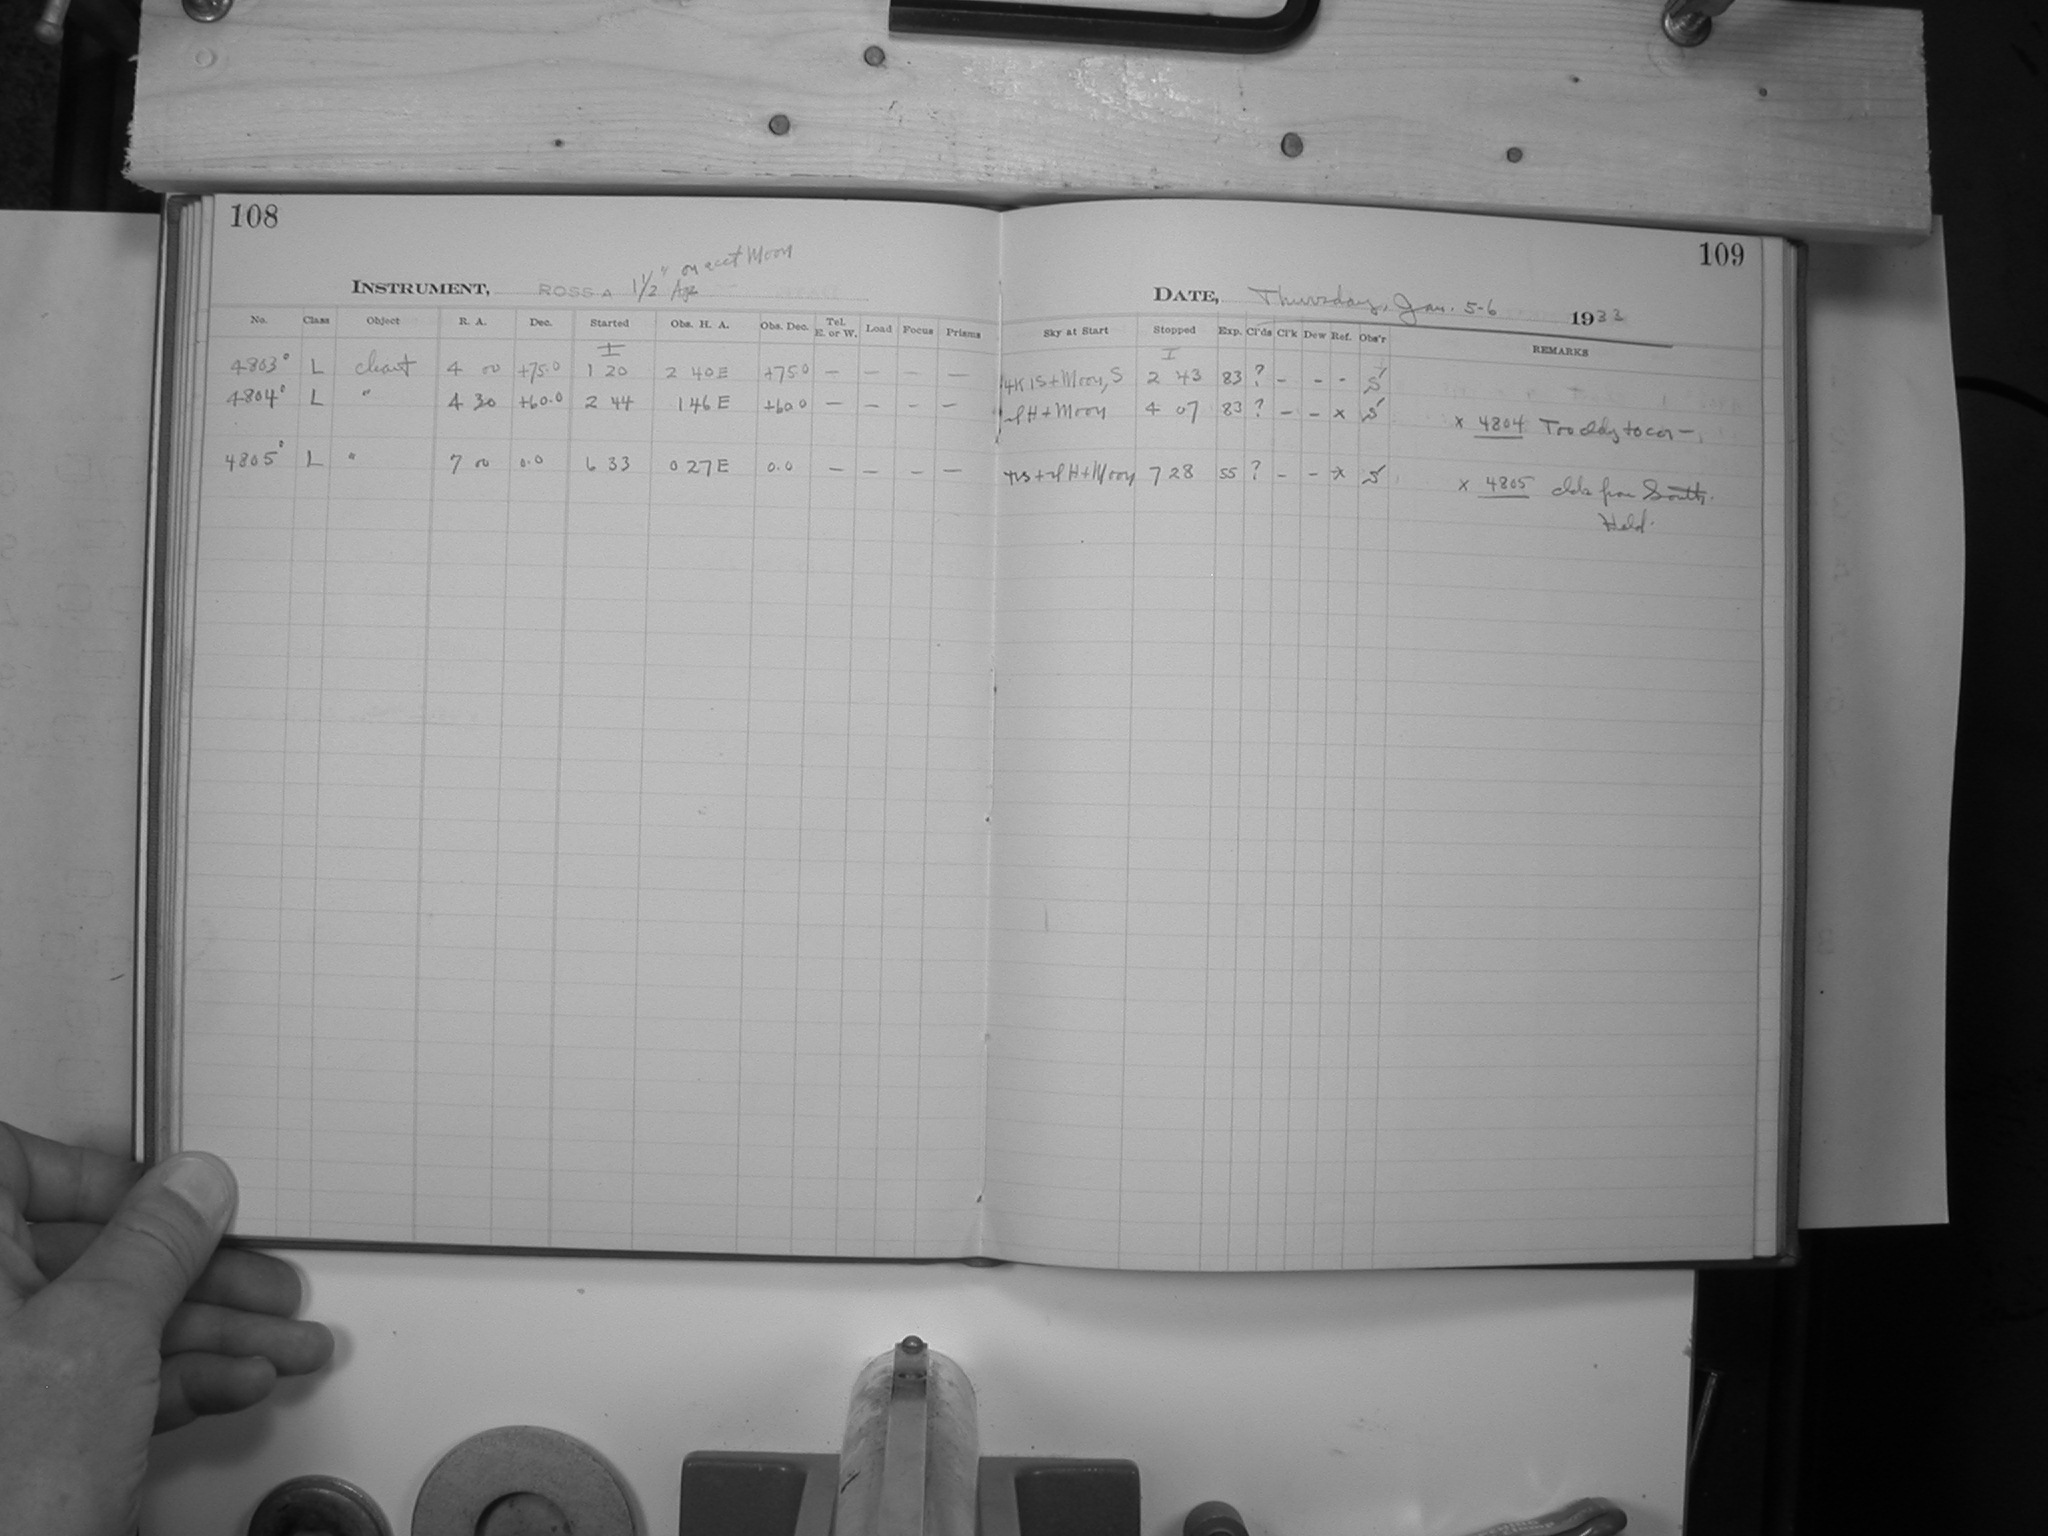 108
109
INSTRUMENT, ROSS A 1 1/2" Ap on acct Moon
DATE, Thursday, Jan. 5-6 1933
No. Class Object R. A. Dec. Started Obs. H. A. Obs. Dec. Tel. E. or W. Load Focus Prisms Sky at Start Stopped Exp. Cl'ds Cl'k Dew Ref. Obs'r REMARKS
I I
4803° L chart 4 00 +75.0 1 20 2 40 E +75.0 — — — — Moon, S 2 43 83 ? - - - S
4804° L " 4 30 +60.0 2 44 1 46 E +60.0 — — - — H + Moon 4 07 83 ? - - x S
x 4804 Too cldy to con -
4805° L " 7 00 0.0 6 33 0 27 E 0.0 — — — — H + Moon 7 28 55 ? - - x S
x 4805 clds from South.
Held.